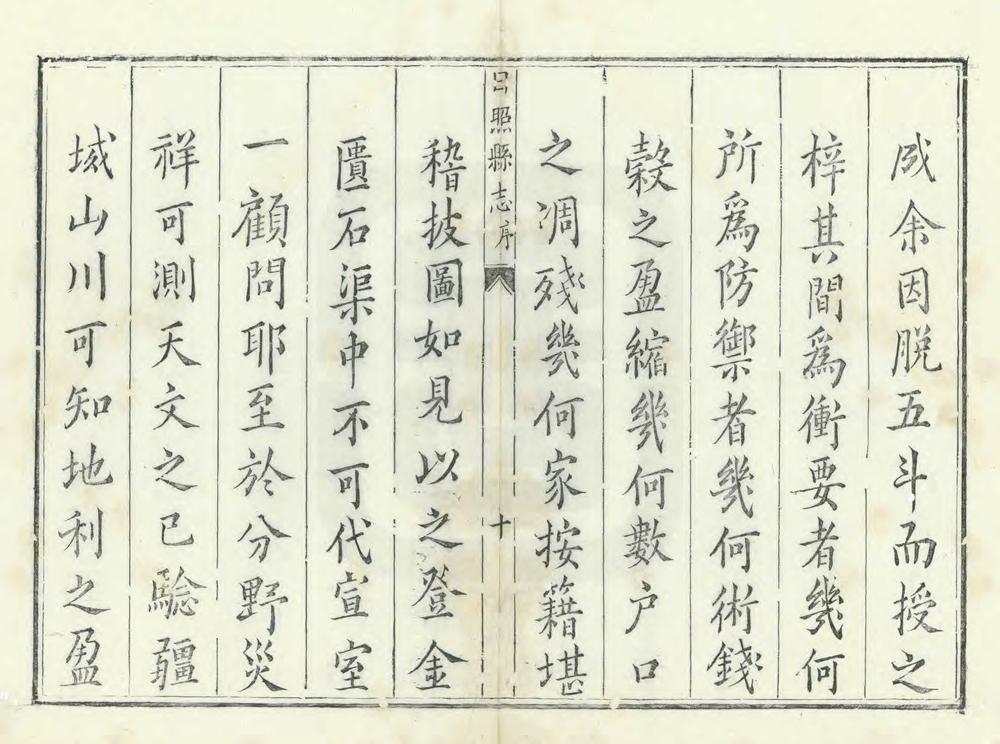 成余因脱五斗而授之
梓其間爲衝要者幾何
所爲防禦者幾何術錢
穀之盈縮幾何數户口
之凋殘幾何家按籍堪
日照縣志序
十
稽披圖如見以之登金
匱石渠中不可代宣室
一顧問耶至於分野災
祥可測天文之已驗疆
域山川可知地利之盈